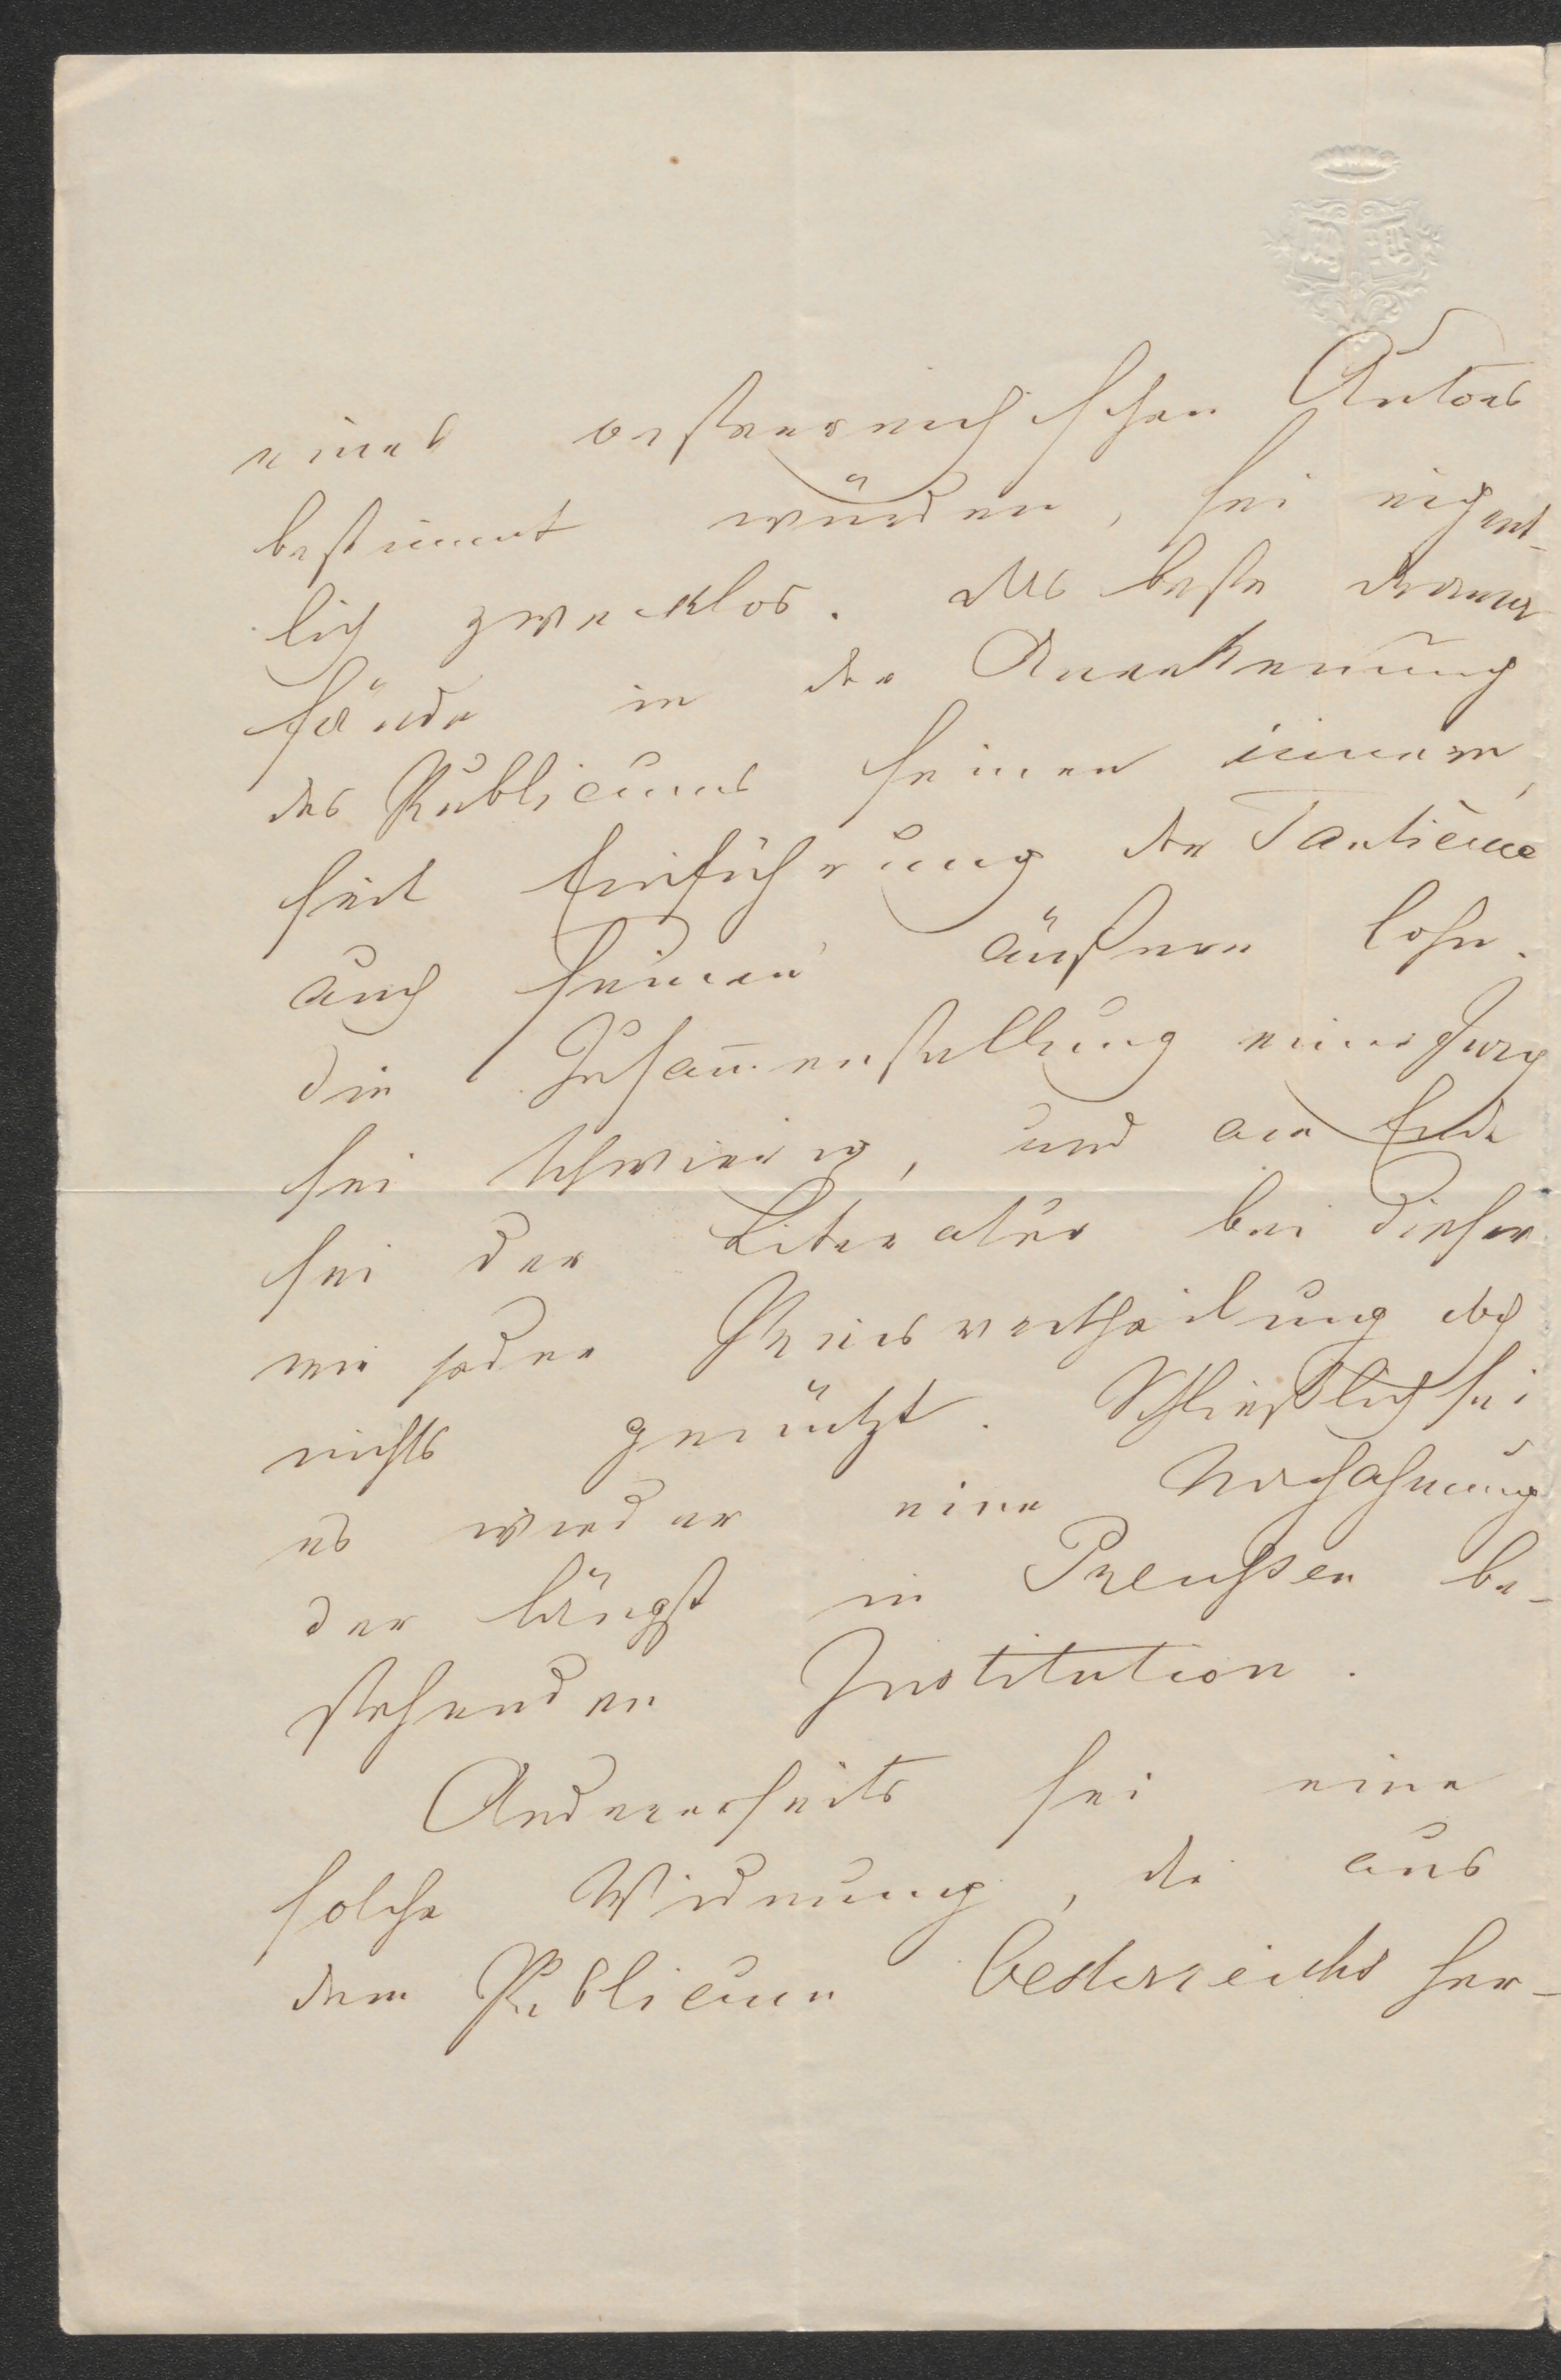 eines oesterreichischen Autors
bestimmt würden, sei eigent-
lich zwecklos. Das beste Drama
fände in der Anerkennung
des Publicums seinen innern,
seit Einführung der Tantième
auch seinen äußern Lohn.
Die Zusam̄enstellung einer Jury
sei schwierig, und am Ende
sei der Literatur bei dieser
wie jeder Preisvertheilung doch
nichts genützt. Schließlich sei
es wieder eine Nachahmung
der längst in Preußen be-
stehenden Institution.
Andererseits sei eine
solche Widmung, die aus
dem Publicum Oesterreichs her-